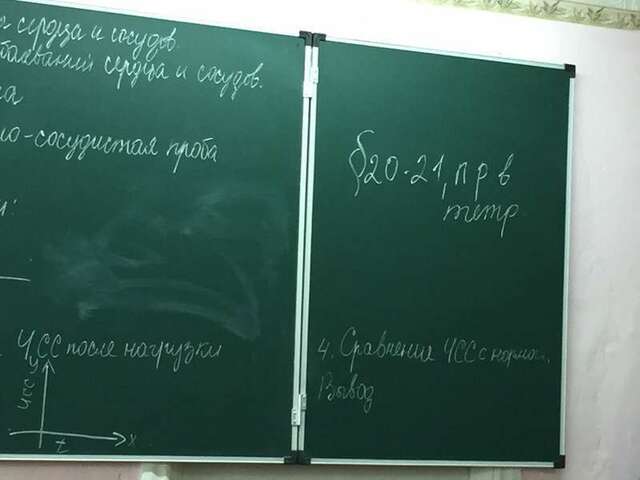 сердца и сосудов.
сердца и сосудов.
но-сосудистая проба
ЧСС после нагрузки
ЧСС
y
t
x
§20-21, пр в
тетр
4. Сравнение ЧСС с нормой.
Вывод